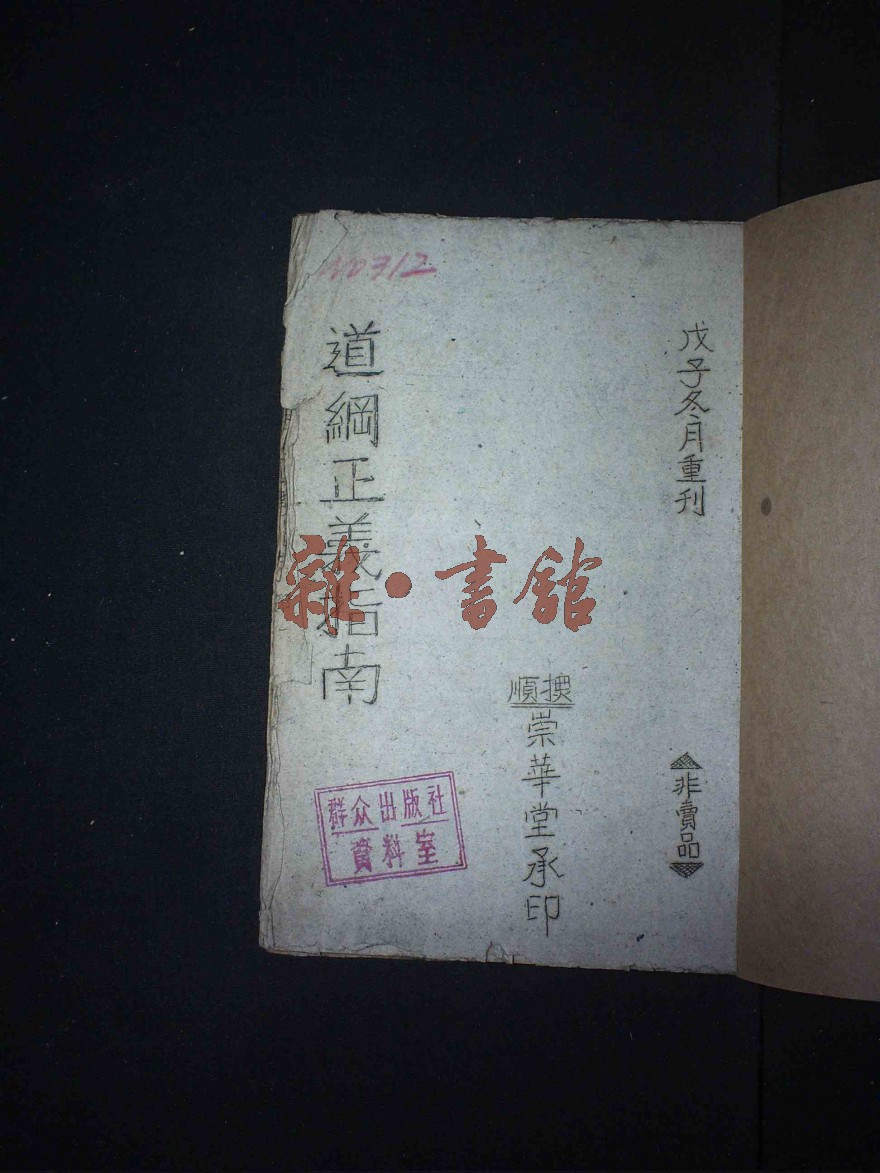 戊子冬月重刊
非賣品
撫順
崇華堂承印
道綱正義指南
群众出版社
資料室
雜·書館